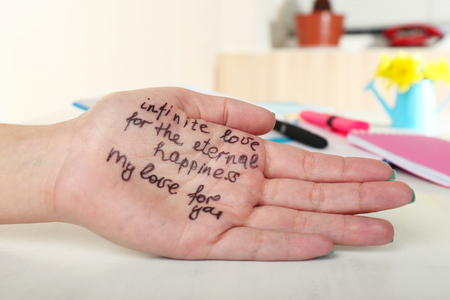 infinite love
for the eternal
happiness
my love for
you